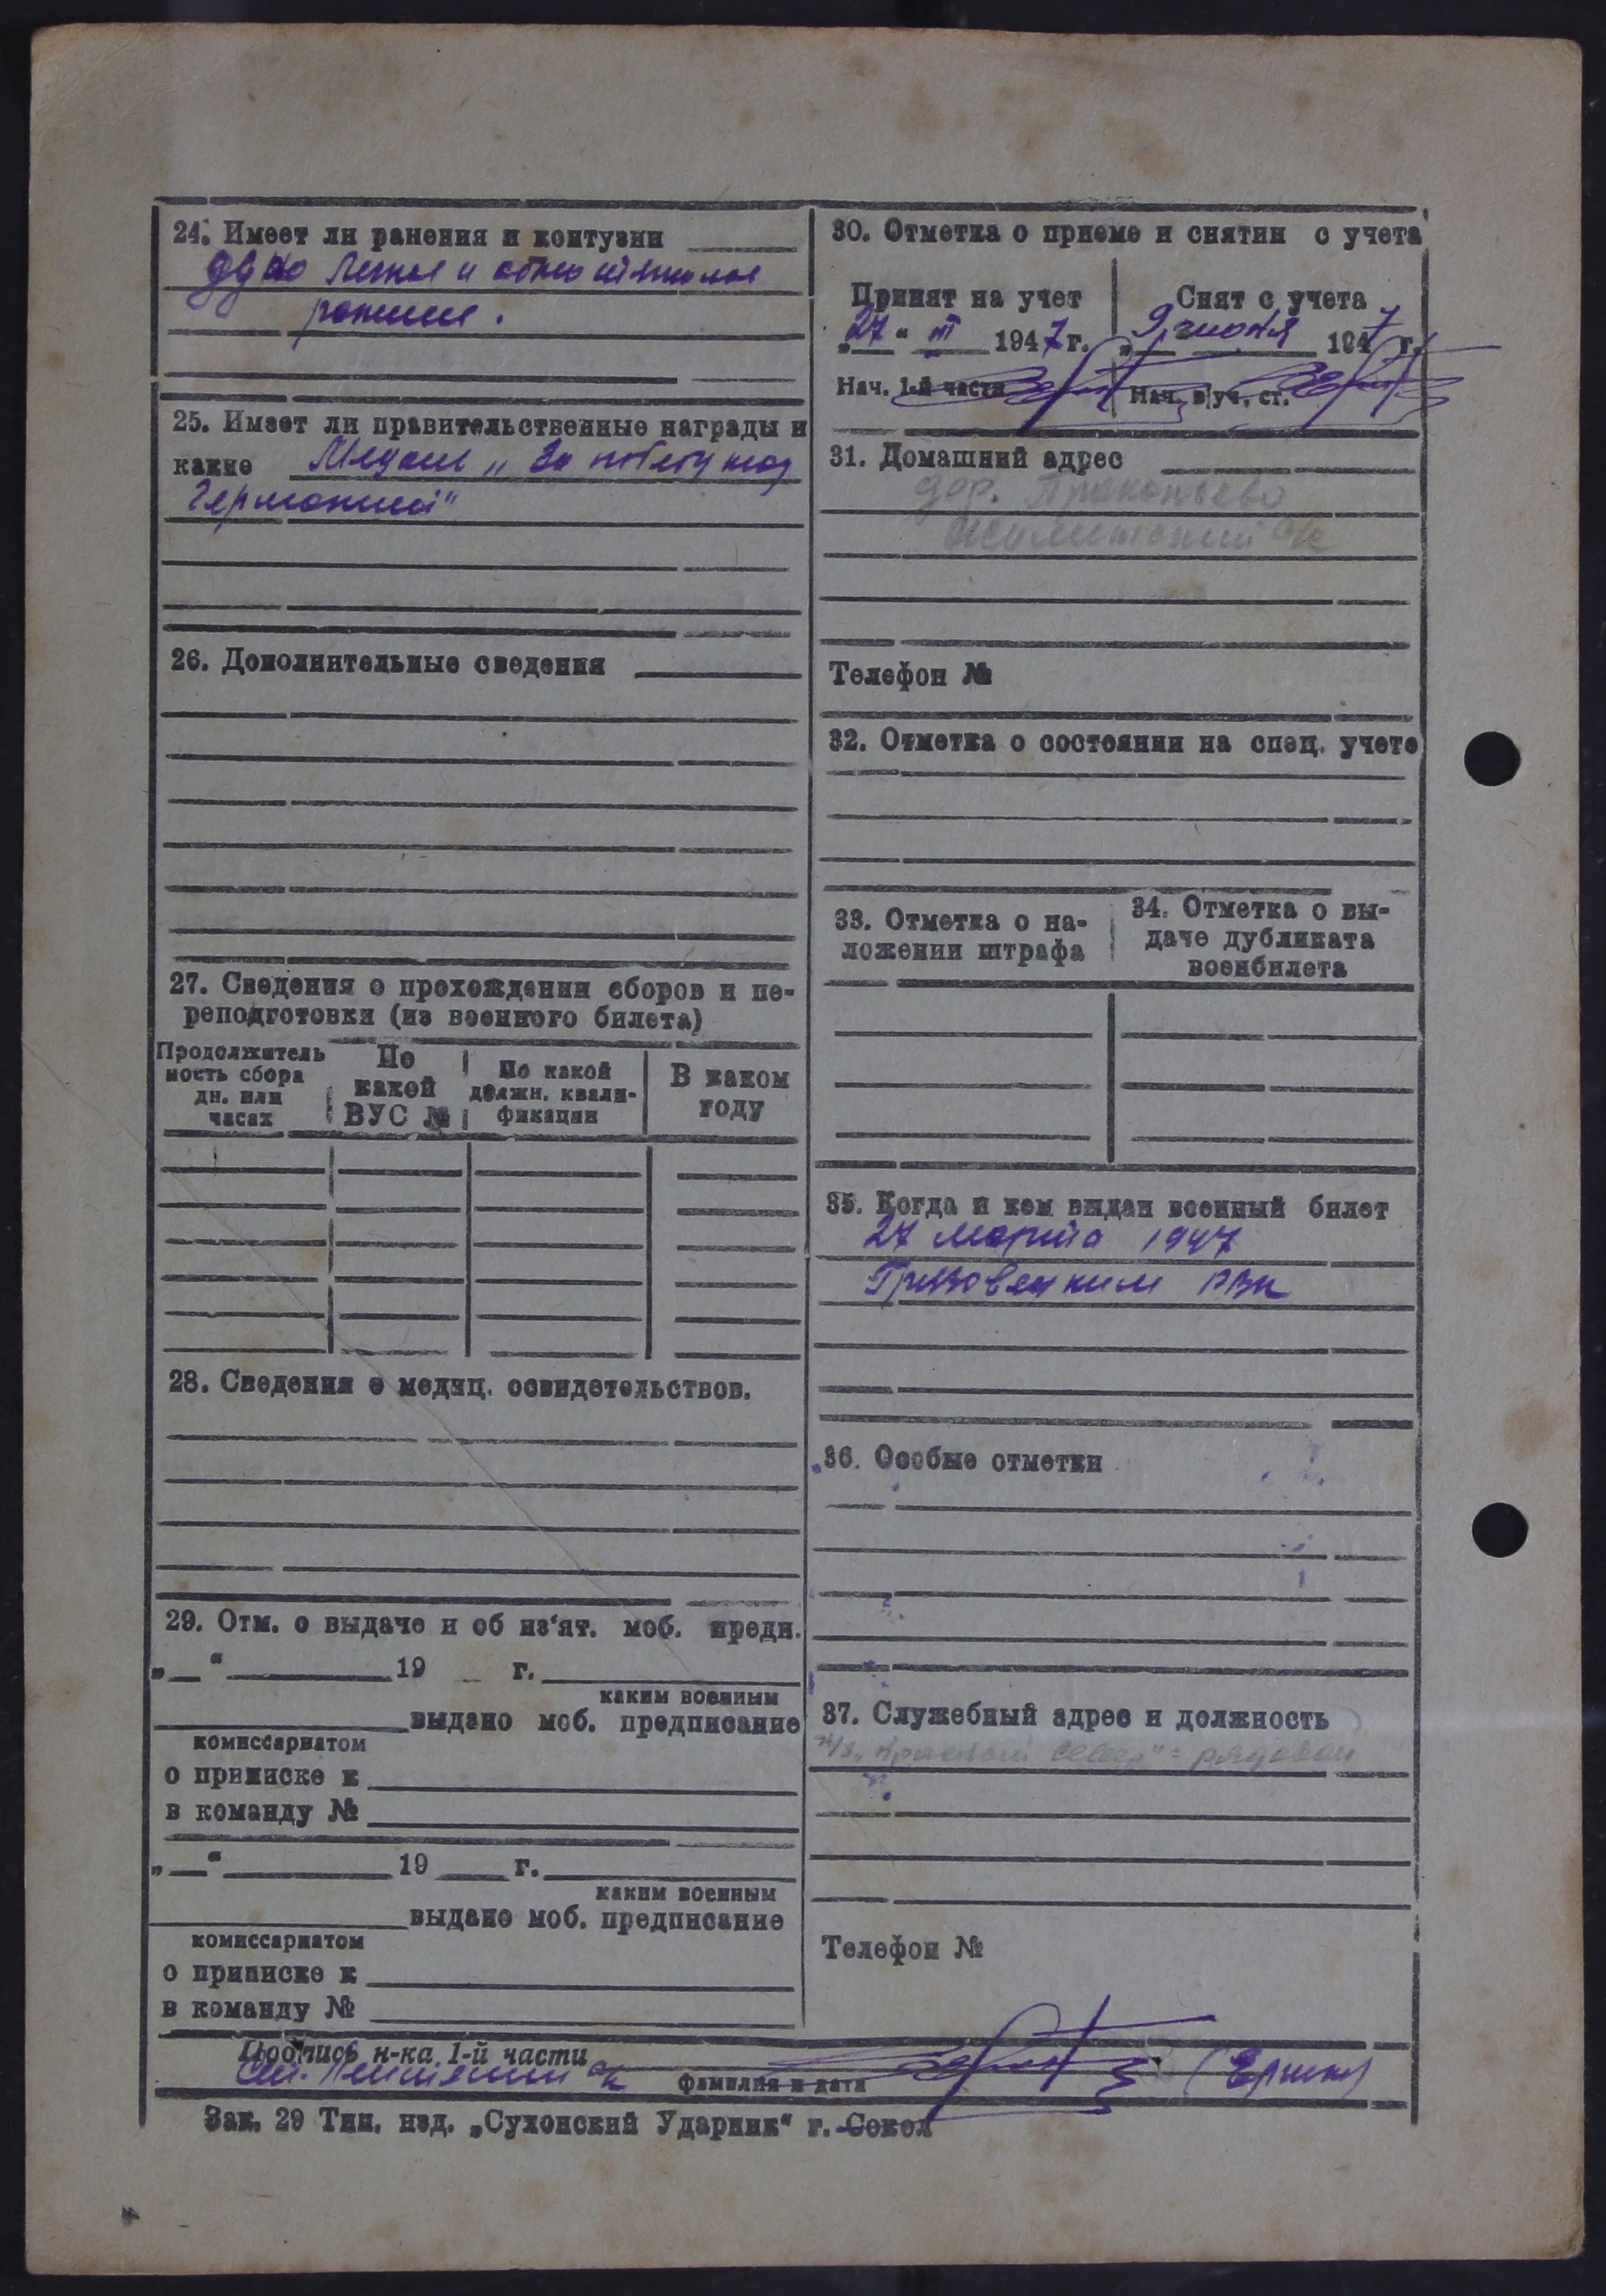 24. Имеет ли ранения и контузии
одно легкое и одно тяжелое
ранение.
25. Имеет ли правительственные награды и
какие Медаль „За победу над
Германией"
26. Дополнительные сведения
27. Сведения о прохождении сборов и пе-
реподготовки (из военного билета)
Продолжитель
ность сбора
дн. или
часах
По
какой
ВУС №
По какой
должн. квали-
фикации
В каком
году
28. Сведения о медиц. освидетельствов.
29. Отм. о выдаче и об из'ят. моб. предп.
„ “ 19 г.
каким военным
выдано моб. предписание
комиссариатом
о приписке к
в команду №
„ “ 19 г.
каким военным
выдано моб. предписание
комиссариатом
о приписке к
в команду №
30. Отметка о приеме и снятии с учета
Принят на учет
„27“ III 1947 г.
Нач. 1-й части
Снят с учета
„9 июня 1947 г.
Нач. в/уч. ст.
31. Домашний адрес
дер. Прокопьево
с/с
Телефон №
32. Отметка о состоянии на спец. учете
33. Отметка о на-
ложении штрафа
34. Отметка о вы-
даче дубликата
военбилета
35. Когда и кем выдан военный билет
27 марта 1947
Грязовецким РВК
36. Особые отметки
37. Служебный адрес и должность
к/з „Красный Север" = рядовой
Телефон №
Подпись н-ка 1-й части
фамилия и дата
(Ершов)
Зак. 29 Тип. изд. „Сухонский Ударник“ г. Сокол